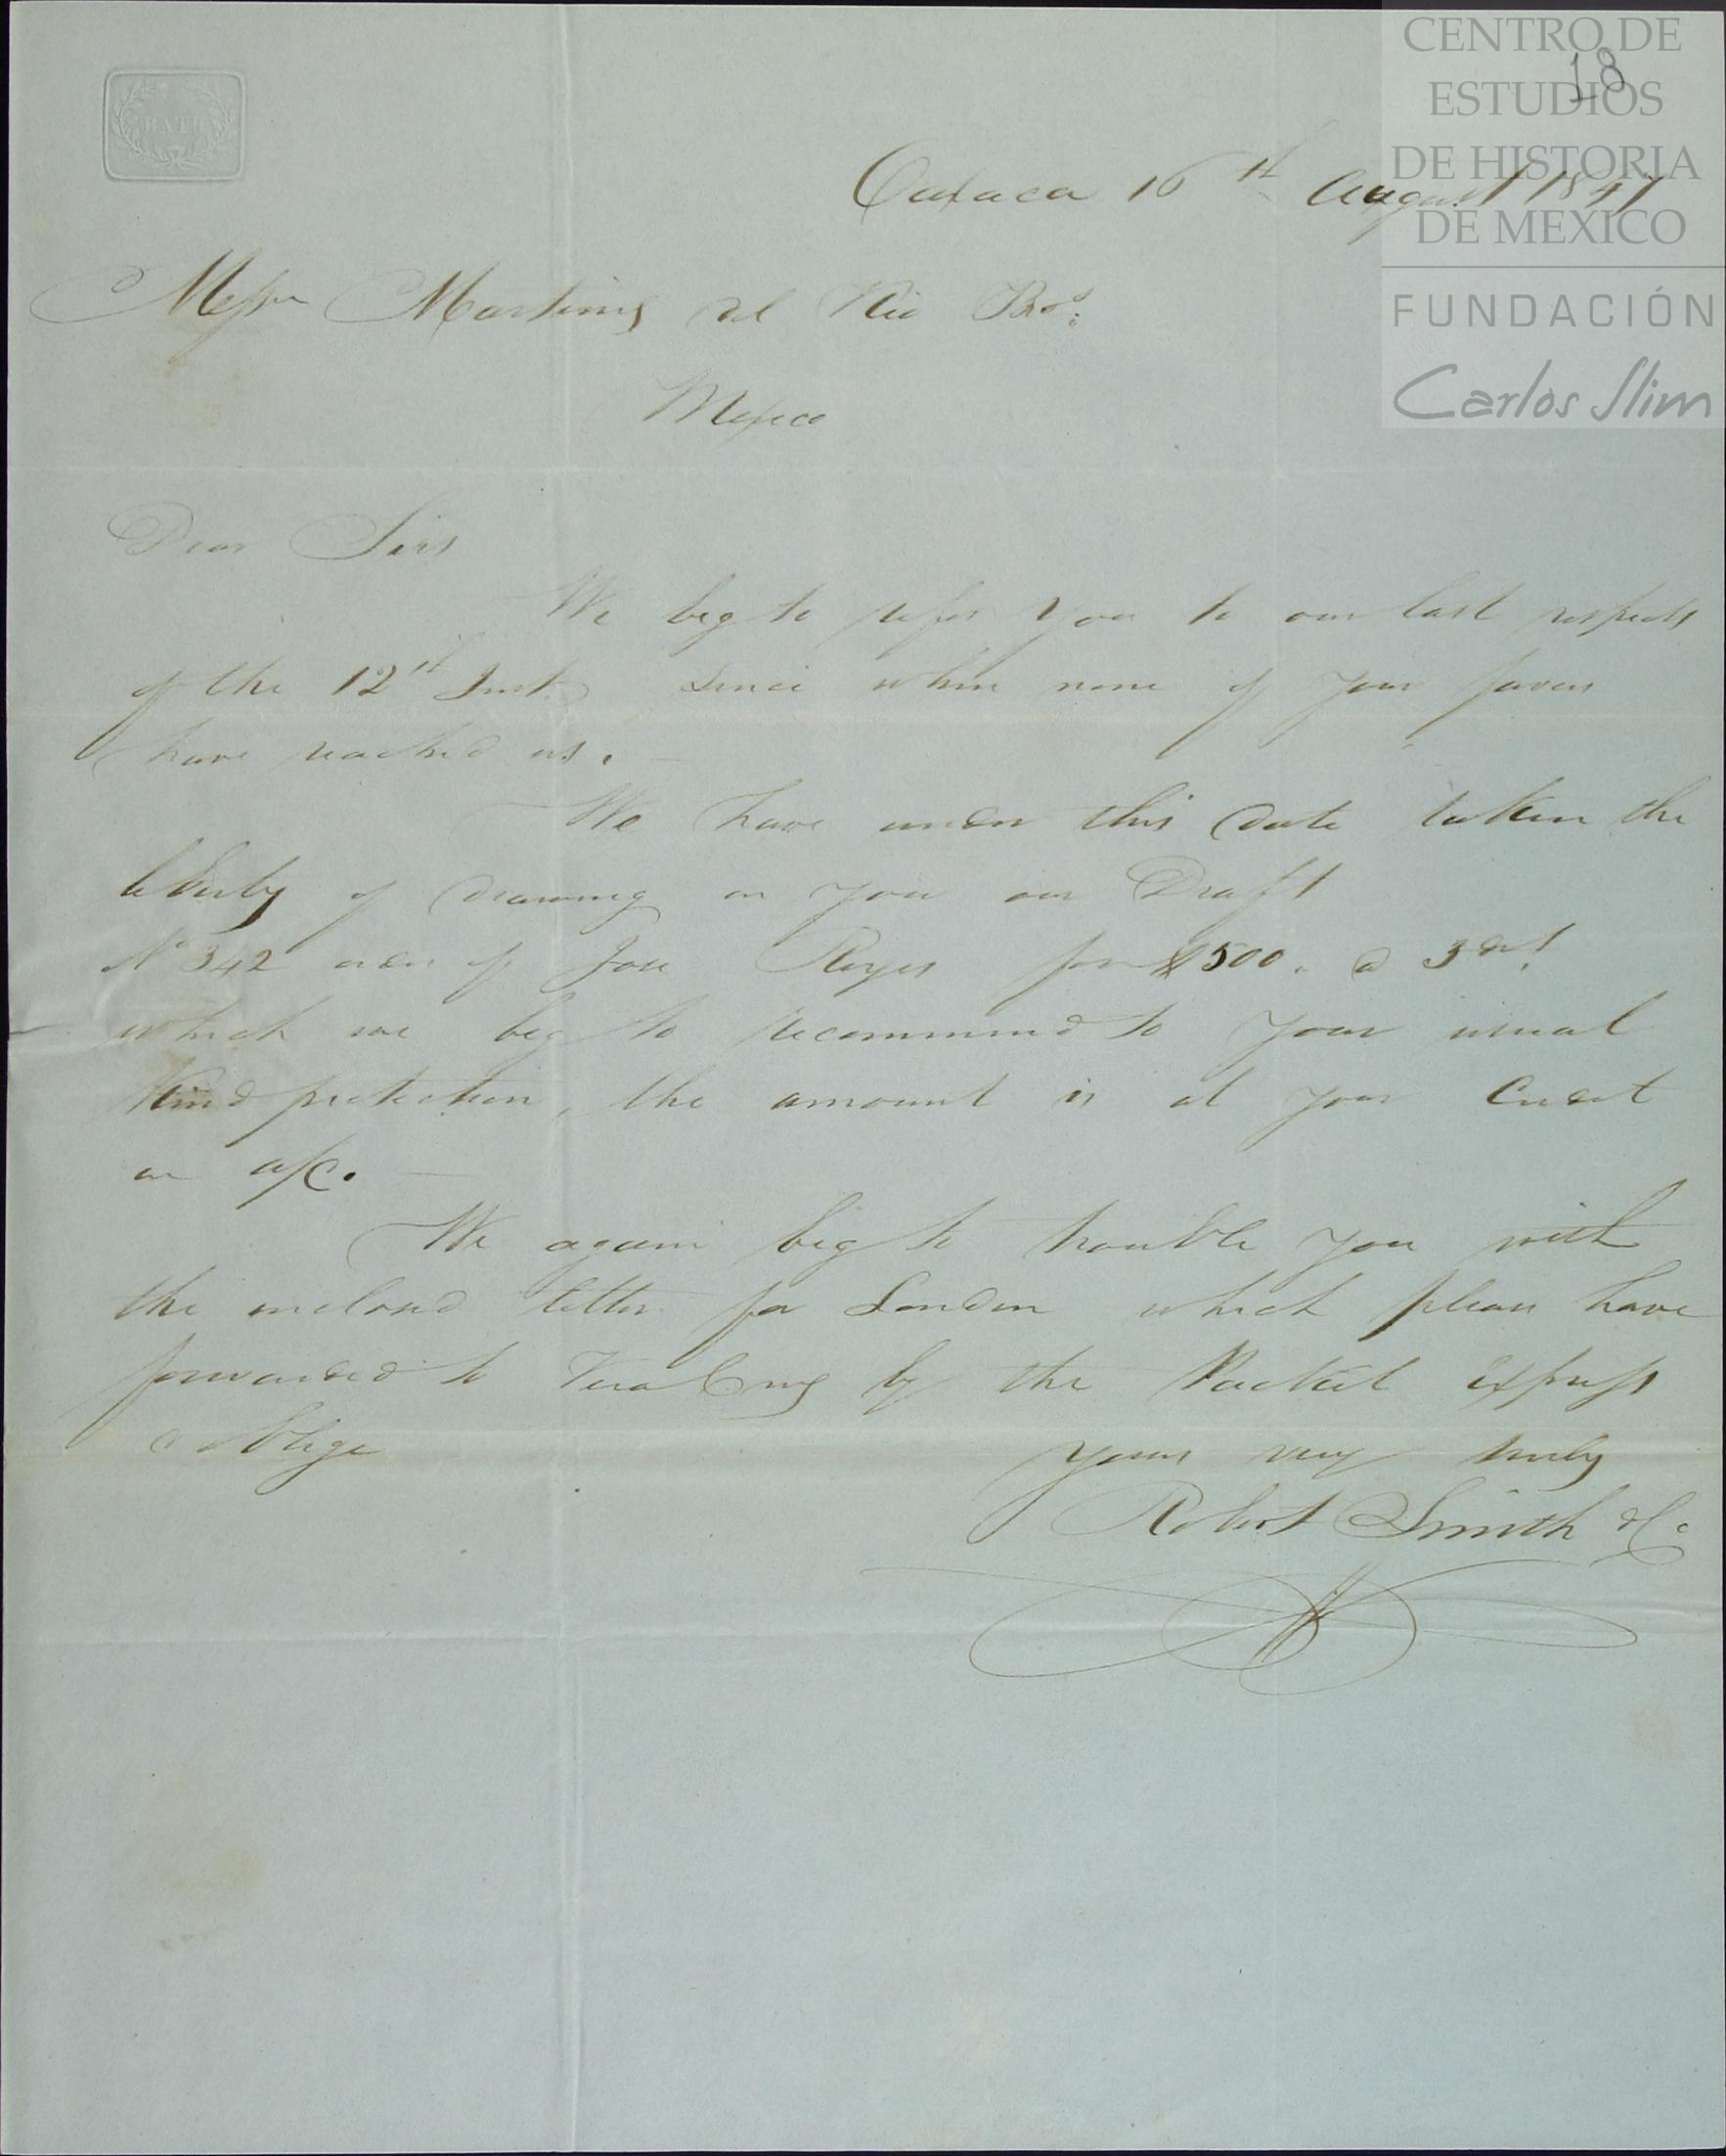 CENTRO DE
ESTUDIOS
DE HISTORIA
DE MEXICO
FUNDACIÓN
Carlos Slim
18
BATH
Oaxaca 16th August 1847
Messrs Martinez del Rio Bros:
Mexico
Dear Sirs
We beg to refer you to our last respects
of the 12th Inst. since when none of your favors
have reached us. —
We have under this date taken the
liberty of drawing on you our Draft
No 342 order of Jose Reyes for $500. @ 3 d/
which we beg to recommend to your usual
kind protection, the amount is at your Credit
in a/c. —
We again beg to trouble you with
the inclosed letter for London which please have
forwarded to Vera Cruz by the Packet Express
& oblige
yours very truly
Robert Smith & Co